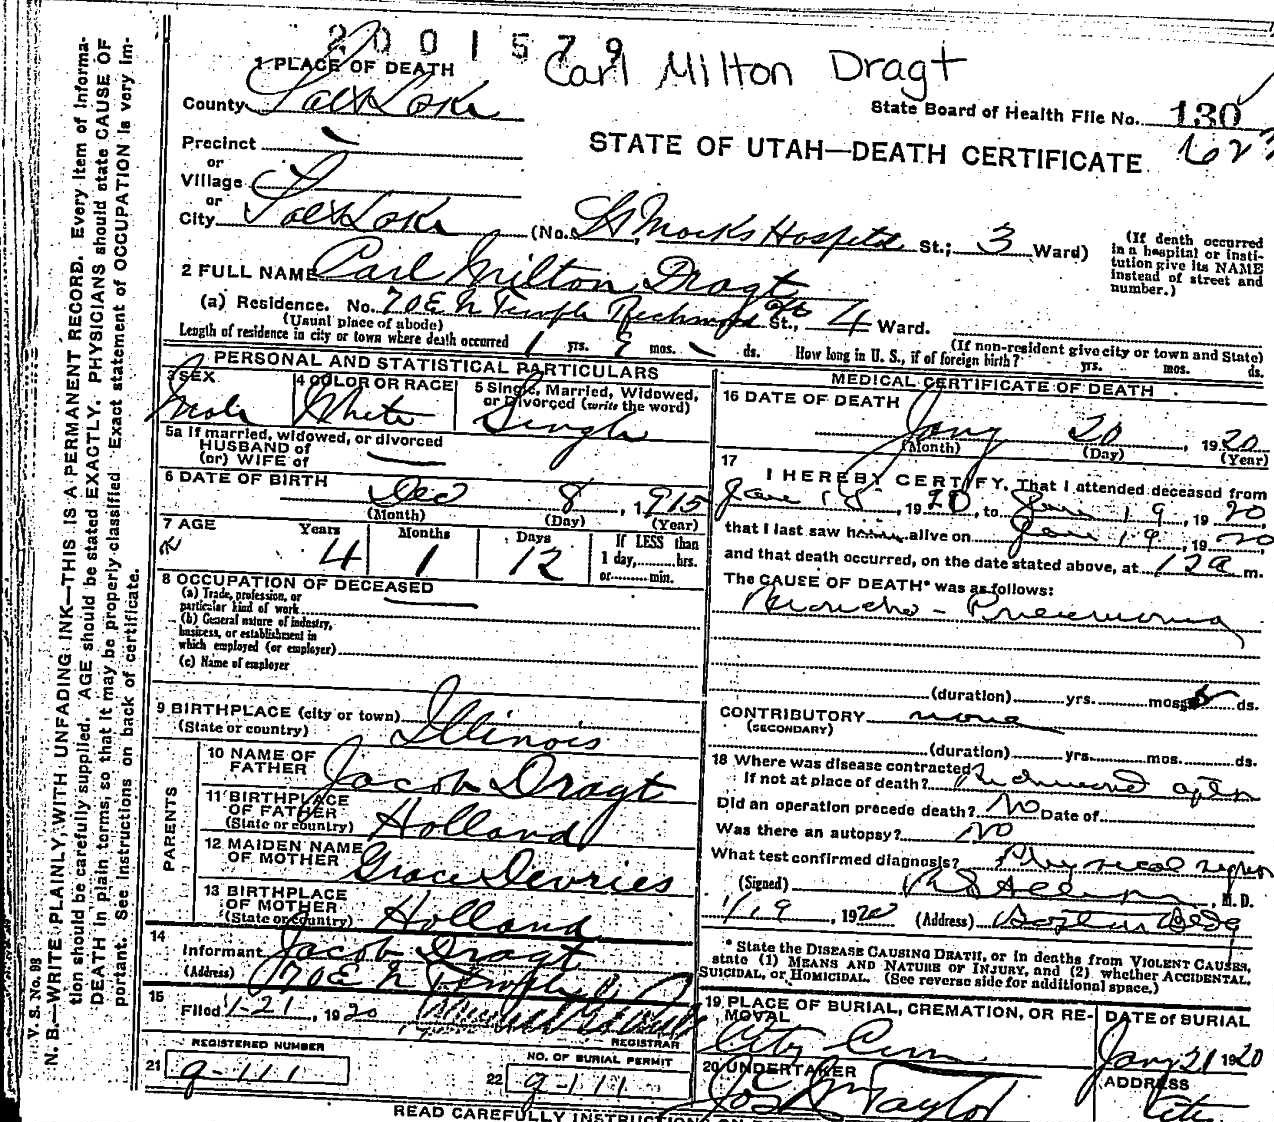 2001579
Carl Milton Dragt
1 PLACE OF DEATH
County Salt Lake
State Board of Health File No. 130
Precinct
STATE OF UTAH—DEATH CERTIFICATE
or
Village
or
City Salt Lake (No. St Marks Hospital St.; 3 Ward)
(If death occurred in a hospital or insti-
tution give its NAME
instead of street and
number.)
2 FULL NAME Carl Milton Dragt
(a) Residence. No. 70 E N Temple St., 4 Ward.
(Usual place of abode)
(If non-resident give city or town and State)
Length of residence in city or town where death occurred 1 yrs. mos. ds. How long in U. S., if of foreign birth? yrs. mos. ds.
PERSONAL AND STATISTICAL PARTICULARS
3 SEX Male
4 COLOR OR RACE White
5 Single, Married, Widowed,
or Divorced (write the word)
Single
5a If married, widowed, or divorced
HUSBAND of
(or) WIFE of
6 DATE OF BIRTH
Dec 8, 1915
(Month) (Day) (Year)
7 AGE Years Months Days If LESS than
4 1 12 1 day,........hrs.
or.........min.
8 OCCUPATION OF DECEASED
(a) Trade, profession, or
particular kind of work
(b) General nature of industry,
business, or establishment in
which employed (or employer)
(c) Name of employer
9 BIRTHPLACE (city or town)
(State or country) Illinois
PARENTS
10 NAME OF
FATHER Jacob Dragt
11 BIRTHPLACE
OF FATHER
(State or country) Holland
12 MAIDEN NAME
OF MOTHER Grace Devries
13 BIRTHPLACE
OF MOTHER
(State or country) Holland
14
Informant Jacob Dragt
(Address) 70 E N Temple
15
Filed 1-21, 1920
REGISTRAR
REGISTERED NUMBER
21 9-111
NO. OF BURIAL PERMIT
22 9-111
MEDICAL CERTIFICATE OF DEATH
16 DATE OF DEATH
Jany 20, 1920
(Month) (Day) (Year)
17
I HEREBY CERTIFY, That I attended deceased from
Jan 18, 1920, to Jan 19, 1920,
that I last saw him alive on Jan 19, 1920,
and that death occurred, on the date stated above, at 12 a m.
The CAUSE OF DEATH* was as follows:
Broncho-Pneumonia
(duration) yrs. mos. ds.
CONTRIBUTORY none
(SECONDARY)
(duration) yrs. mos. ds.
18 Where was disease contracted
If not at place of death?
Did an operation precede death? No Date of
Was there an autopsy? No
What test confirmed diagnosis? Physical signs
(Signed) , M. D.
1/19, 1920 (Address) Boston Bldg
* State the DISEASE CAUSING DEATH, or in deaths from VIOLENT CAUSES,
state (1) MEANS AND NATURE OF INJURY, and (2) whether ACCIDENTAL,
SUICIDAL, or HOMICIDAL. (See reverse side for additional space.)
19 PLACE OF BURIAL, CREMATION, OR RE-
MOVAL
City Cem
DATE of BURIAL
Jany 21 1920
20 UNDERTAKER
Taylor
ADDRESS
City
READ CAREFULLY
V. S. No. 98
N. B.—WRITE PLAINLY, WITH UNFADING INK—THIS IS A PERMANENT RECORD. Every item of informa-
tion should be carefully supplied. AGE should be stated EXACTLY. PHYSICIANS should state CAUSE OF
DEATH in plain terms, so that it may be properly classified. Exact statement of OCCUPATION is very im-
portant. See instructions on back of certificate.